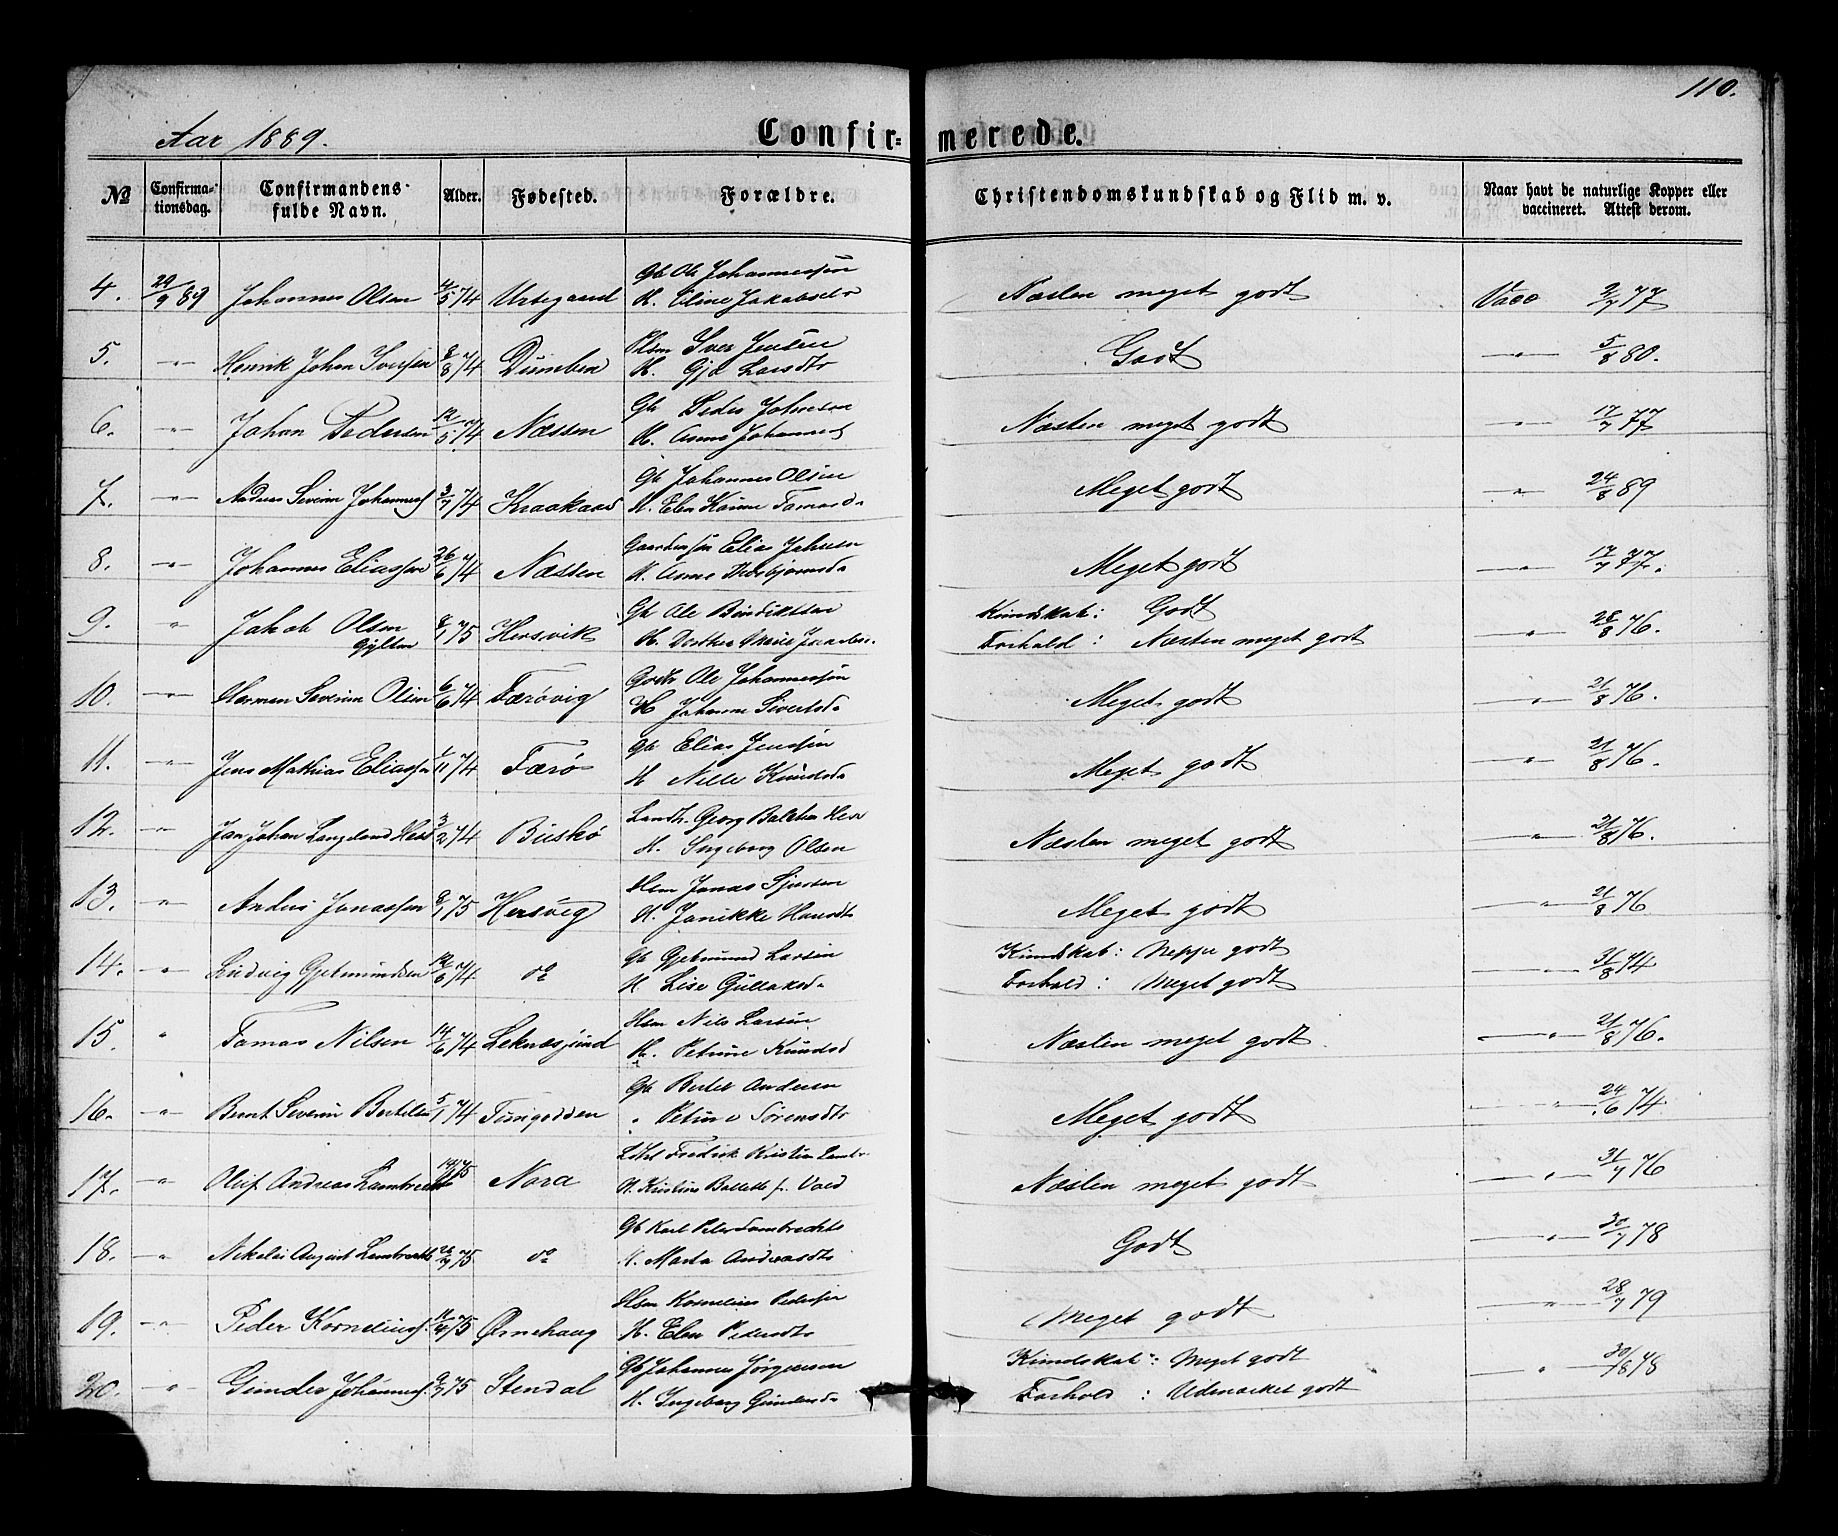 110.
Aar 1889.
Confir= merede.
No Confirma-tionsdag. Confirmandens fulde Navn. Alder. Fødested. Forældre. Christendomskundskab og Flid m. v. Naar havt de naturlige Kopper eller vaccineret. Attest derom.
4. 29/9 89 Johannes Olsen /5 74 Utegaard Gb Ole Johannessen
H. Eline Jakobsdr Næsten meget godt Vacc 2/7 77
5. -"- Henrik Johan Iversen 8/8 74 Dumben Plsm Iver Jensen
H. Gjø Larsdtr Godt -"- 5/8 80.
6. -"- Johan Pedersen 12/5 74 Næssen Gb Peder Johnsen
H. Anne Johannesd Næsten meget godt -"- 17/7 77
7. -"- Andreas Severin Johanness 3/7 74 Kraakaas Gb Johannes Olsen
H. Elen Karine Tomasd. Meget godt -"- 24/8 89
8. -"- Johannes Eliassen 26/6 74 Næssen Elias Johnsen
H. Anne Meget godt -"- 17/7 77.
9. " Jakob Olsen Gylten 8/1 75 Hersvik Gb Ole Bendiktsen
H. Dorthea Kundskab: Godt
Forhold: Næsten meget godt -"- 28/8 76.
10. -"- Herman Severin Olsen 6/6 74 Færøvig Ole Johannessen
H Johanne Sivertsd. Meget godt -"- 21/8 76.
11. -"- Jens Mathias Eliassen 1/11 74 Færø Gb Elias Jenssen
H Nille Knudsd. Meget godt -"- 21/8 76.
12. -"- Jan Johan Langeland Herø 3/2 74 Buskø Landh. Georg
H. Ingeborg Olsen Næsten meget godt -"- 21/8 76.
13. -"- Anders Jonassen 8/1 75 Hersvig Hsm Jonas
H. Janikke Hansdtr Meget godt -"- 21/8 76
14. -"- Ludvig Gjetmundsen 12/6 74 do Gb Gjetmund Larsen
H Lise Gullaksd. Kundskab: Neppe godt
Forhold: Meget godt -"- 31/8 74
15. " Tomas Nilsen 14/6 74 Leknæssund Hsm Nils Larsen
H. Petrine Knudsd Næsten meget godt -"- 21/8 76.
16. -"- Bernt Severin Bertelsen 5/1 74 Tungodden Gb Bertel Andersen
" Petrine Sørensdtr Meget godt -"- 24/6 74
17. -"- Oluf Andreas Lambrechts 75 Nora Fredrik Kristian Lambr.
H. Kristine f. Vold Næsten meget godt -"- 31/7 76
18. -"- Nikolai August Lambrechts 75. do Gb Karl Peter Lambrechts
H. Marta Andreasdtr Godt -"- 30/7 78
19. -"- Peder Korneliuss. 75 Ørnehaug Hsm Kornelius Pedersen
H. Elen Pedersdtr Meget godt -"- 28/7 79
20. -"- Gunder Johanness. 9/7 75 Stendal Gb Johannes Jørgensen
H. Ingeborg Gundersd. Kundskab: Meget godt
Forhold: Udmærket godt " 30/8 78